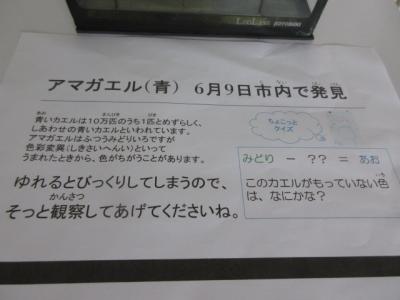 アマガエル(青) 6月9日市内で発見
青いカエルは10万匹のうち1匹とめずらしく、
しあわせの青いカエルといわれています。
アマガエルはふつうみどりいろですが
色彩変異(しきさいへんい)といって
うまれたときから、色がちがうことがあります。
ゆれるとびっくりしてしまうので、
そっと観察してあげてくださいね。
かんさつ
ちょこっと
クイズ
みどり - ?? = あお
このカエルがもっていない色
は、なにかな?